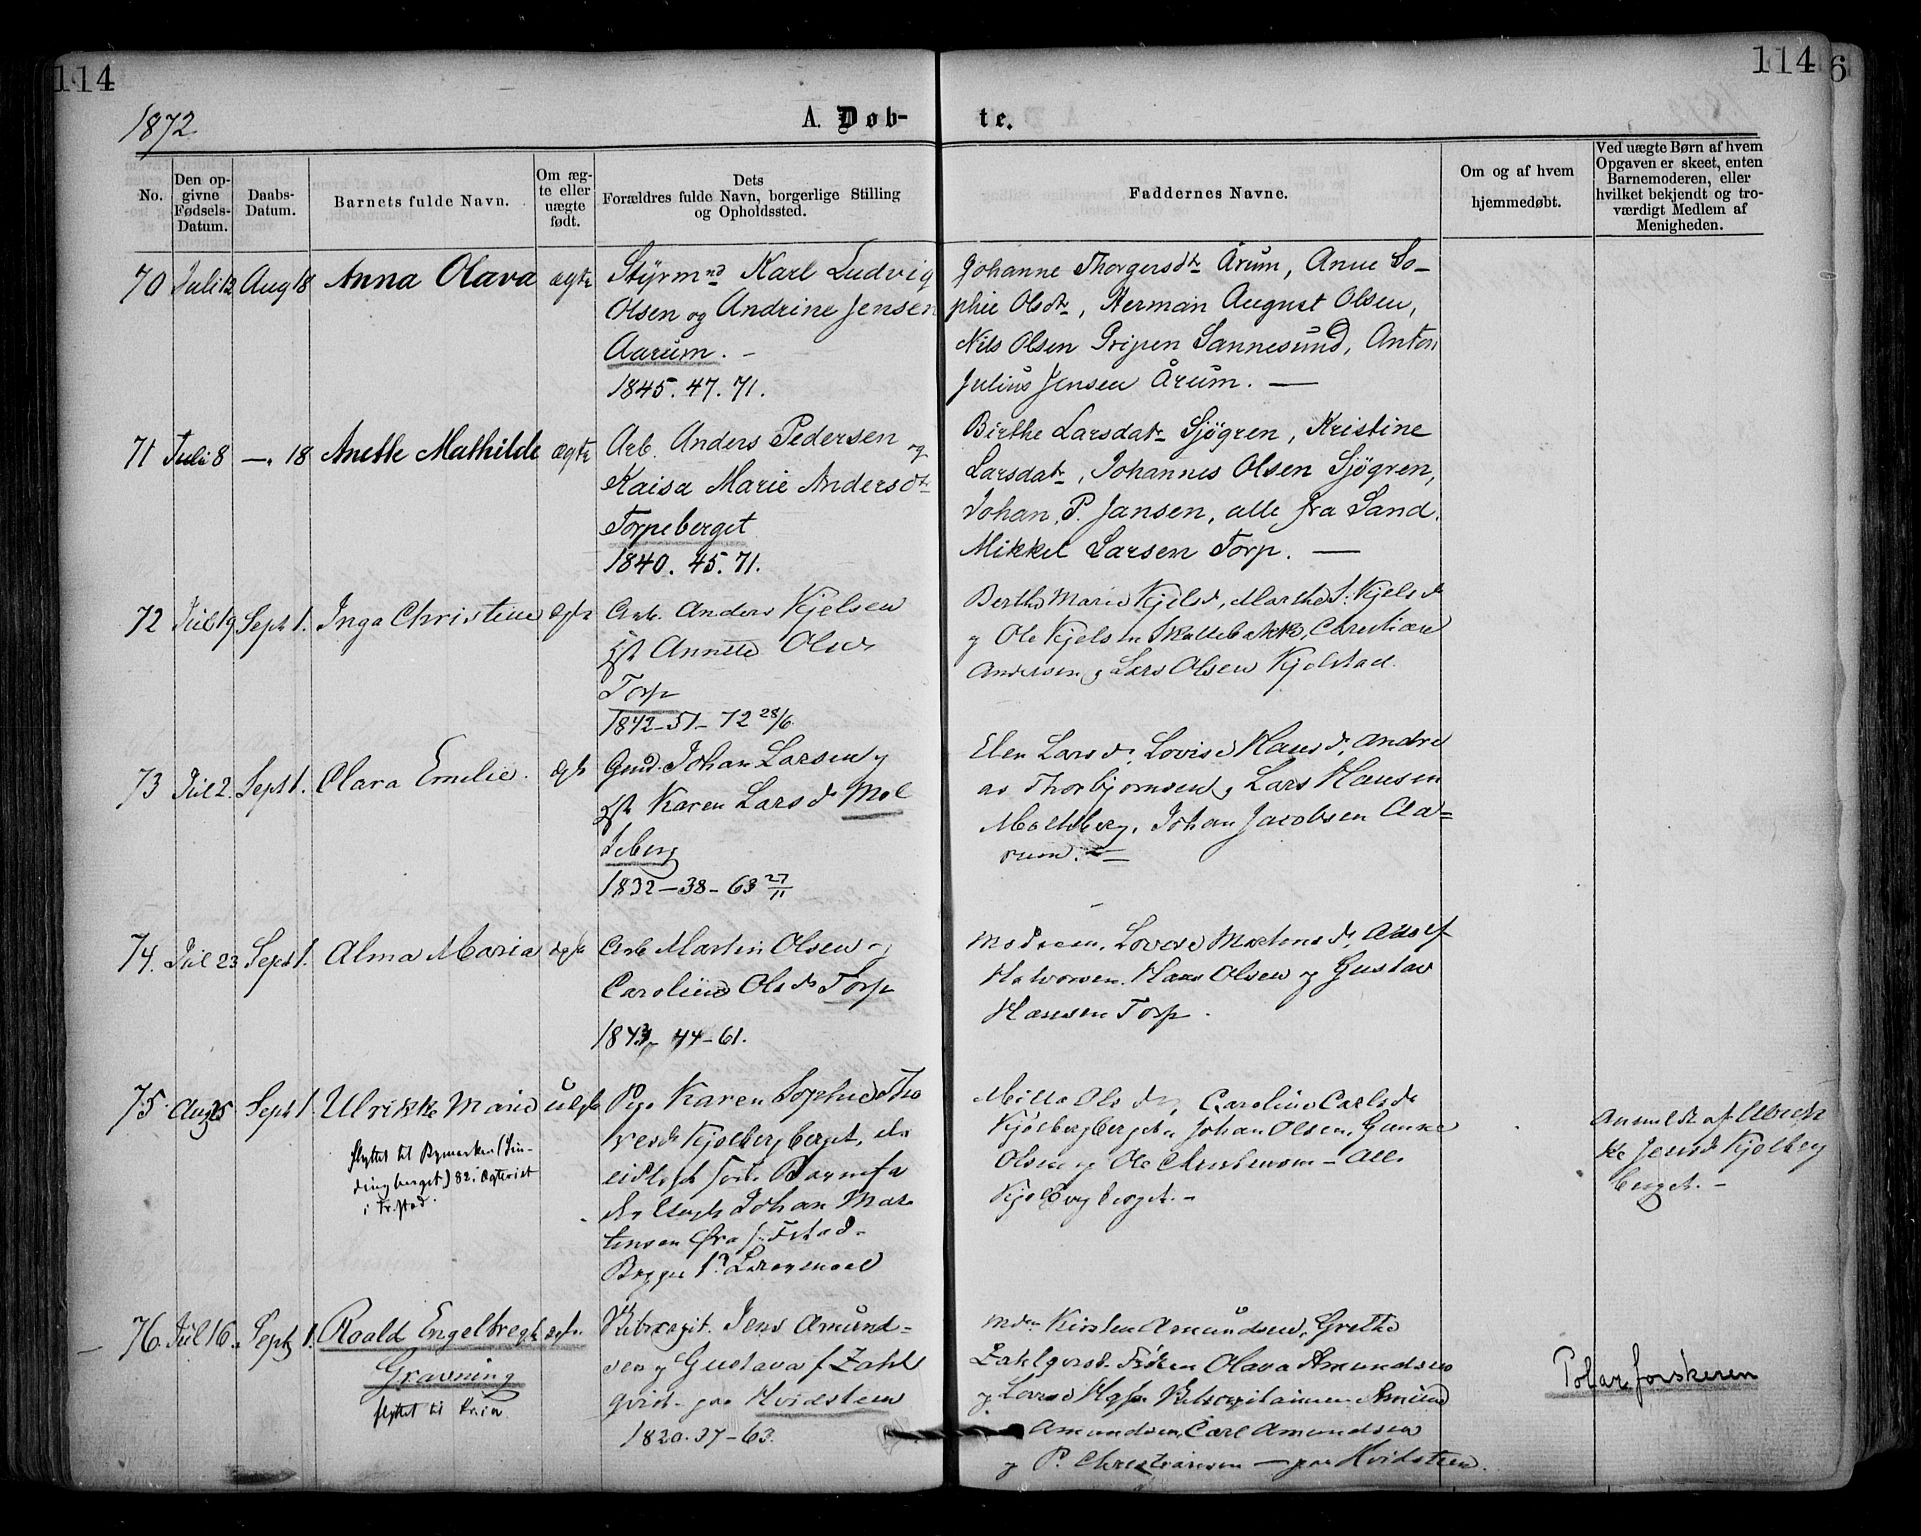 114
114
6
1872
A. Døb-
te.
No.
Den op-
givne
Fødsels-
Datum.
Daabs-
Datum.
Barnets fulde Navn.
Om æg-
te eller
uægte
født.
Dets
Forældres fulde Navn, borgerlige Stilling
og Opholdssted.
Faddernes Navne.
Om og af hvem
hjemmedøbt.
Ved uægte Børn af hvem
Opgaven er skeet, enten
Barnemoderen, eller
hvilket bekjendt og tro-
værdigt Medlem af
Menigheden.
70 Juli 12 Aug 18 Anna Olava ægte
Styrmnd Karl Ludvig
Olsen og Andrine Jensen
Aarum. -
1845. 47. 71.
Johanne Thorgersdtr Årum, Anne So-
phie Olsdtr, Herman August Olsen,
Nils Olsen Gripen Sannesund, Anton
Julius Jensen Årum. —
71 Juli 8 —" 18 Anette Mathilde ægte
Arb. Anders Pedersen og
Kaisa Marie Andersdtr
Torpeberget
1840. 45. 71.
Birthe Larsdatr Sjøgren, Kristine
Larsdatr, Johannes Olsen Sjøgren,
Johan P. Jansen, alle fra Sand.
Mikkel Larsen Torp. —
72 Jul 19 Sept 1. Inga Christine ægte
Arb. Anders Kjelsen
Annette Olsd
Torp
1842-51-72 28/6.
Berthe Marie Kjelsd, Marthe S. Kjelsd
y Ole Kjelsen Skallebakke, Christian
Andersen y Lars Olsen Kjølstad.
73 Jul 2. Sept 1. Clara Emilie. ægte
Gmd. Johan Larsen y
Karen Larsd Mol
deberg
1832-38-63 27/11
Elen Larsd, Lovise Hansd, Andre
as Thorbjørnsen y Lars Hansen
Moldeberg, Johan Jacobsen Aa-
rum. —
74. Jul 23 Sept 1. Alma Maria ægte
Arb Martin Olsen y
Caroline Olsd Torp
1843- 44-61.
Modren, Lovise Martinsd, Adolf
Halvorsen, Hans Olsen y Gustav
Hansen Torp.
75. Aug 25 Sept 1. Ulrikke Marie uægte
flyttet til Bymarken (Lin-
dingberget) 82. Ægtevist
i Fr.stad.
Pige Karen Sophie Tho
resd Kjølbergberget,
Barnefa
Johan Mar
tinsen Øra f. Fstad-
Brygge
Mille Olsd, Caroline Carlsd
Kjølbergberget, Johan Olsen, Gunne
Olsen y Ole Christensen - Alle
Kjølbergberget. -
Anmeldt af Ulrik
ke Jensd Kjølberg
berget. -
76. Jul 16. Sept 1. Roald Engelbregt ægte
Gravning
flyttet til Kr.ia
Skibscapit. Jens Amund-
sen y Gustava f. Zahl
qvist - paa Hvidsteen
1820. 37-63.
Mdm Kirsten Amundsen, Grethe
Zahlqvist. Frøken Olava Amundsen
y Lovise Skibscapitainen Amund
Amundsen, Carl Amundsen
y P. Christiansen - paa Hvidsteen.
Polarforskeren